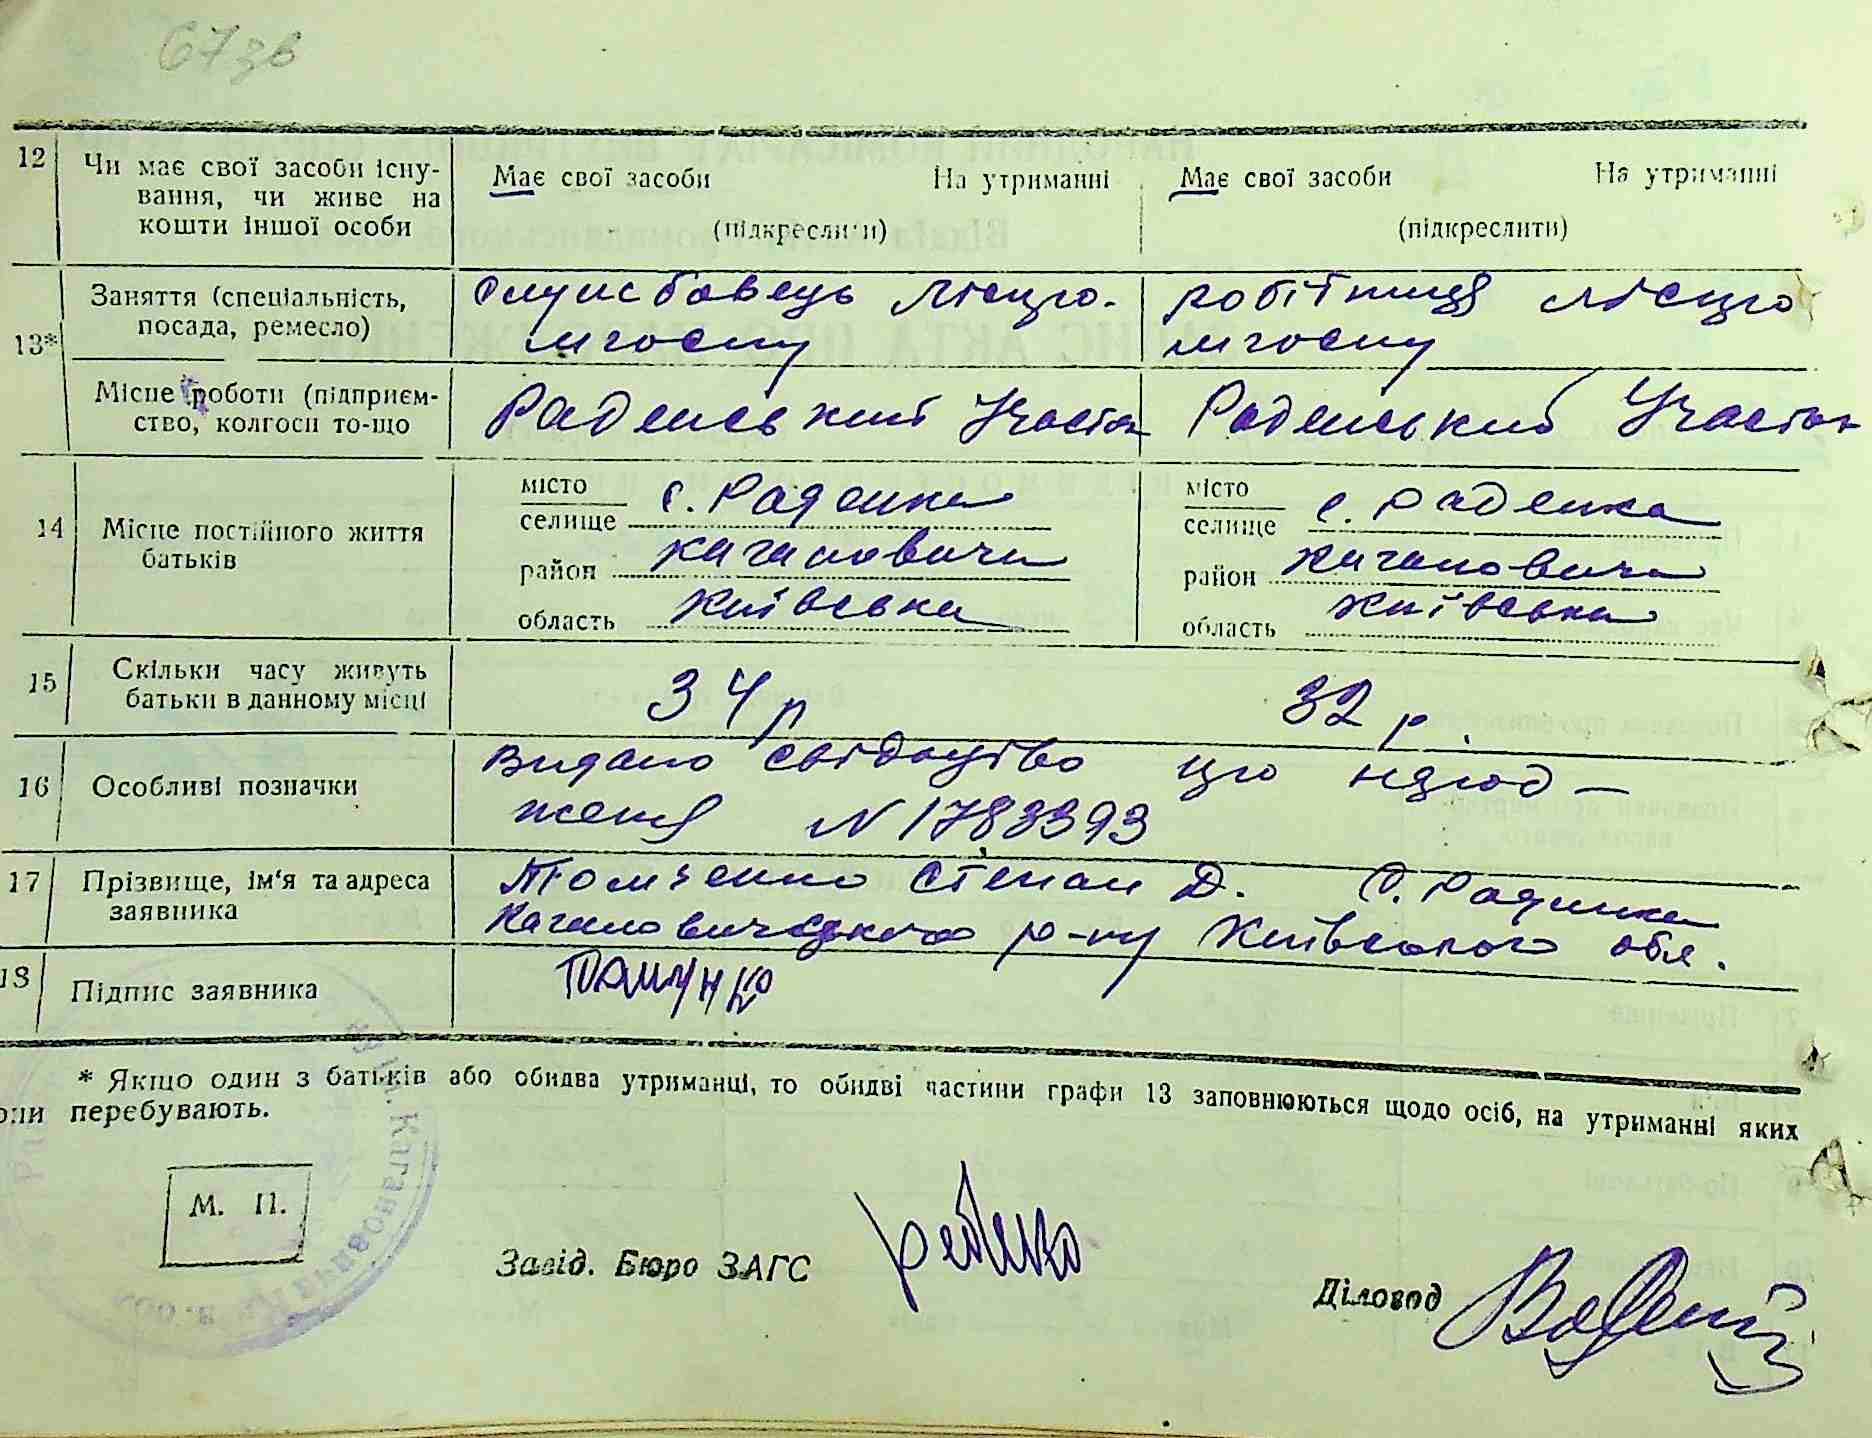 67 зв
12 Чи має свої засоби існу-
вання, чи живе на
кошти іншої особи
Має свої засоби На утриманні
(підкреслити)
Має свої засоби На утриманні
(підкреслити)
13* Заняття (спеціальність,
посада, ремесло)
Службовець ліспро-
мгоспу
робітниця ліспро
мгоспу
Місце роботи (підприєм-
ство, колгосп то-що
Раденський Участок
Раденський Участок
14 Місце постійного життя
батьків
місто
селище с. Раденка
район Кагановича
область Київська
місто
селище с. Раденка
район Кагановича
область Київська
15 Скільки часу живуть
батьки в данному місці
34 р
32 р.
16 Особливі позначки
Видано свідоцтво про народ-
женя N 1783393
17 Прізвище, ім‘я та адреса
заявника
Степан Д. С. Радинка
Кагановичського р-ну Київського обл.
18 Підпис заявника
* Якщо один з батьків або обидва утриманці, то обидві частини графи 13 заповнюються щодо осіб, на утриманні яких
они перебувають.
М. П.
Завід. Бюро ЗАГС
Діловод